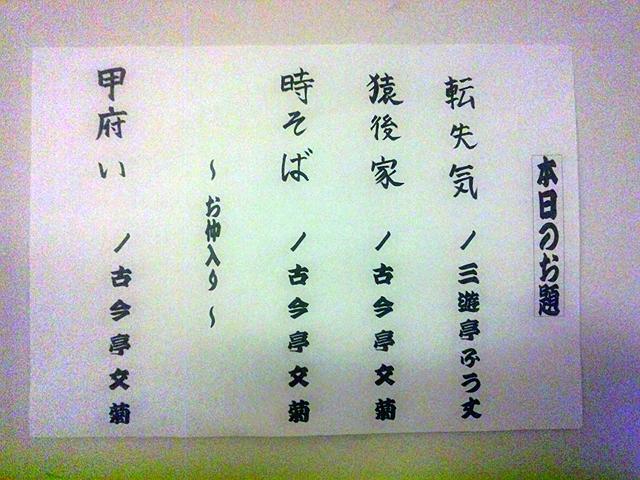 本日のお題
転失気 / 三遊亭ふう丈
猿後家 / 古今亭文菊
時そば / 古今亭文菊
~お仲入り~
甲府い / 古今亭文菊